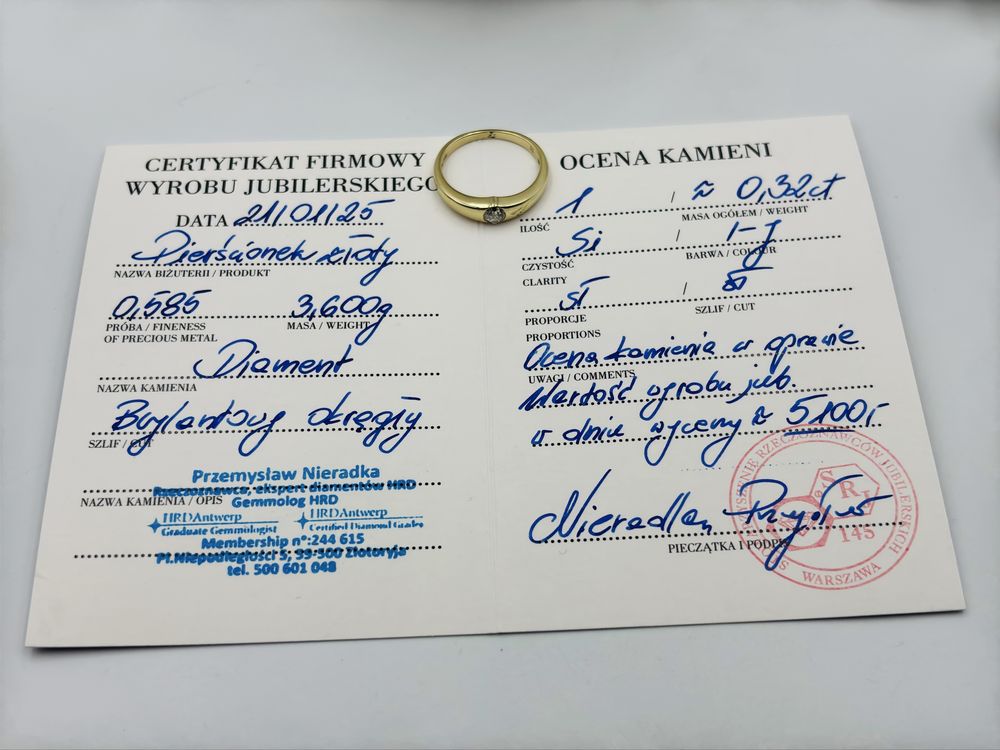 CERTYFIKAT FIRMOWY
WYROBU JUBILERSKIEGO
DATA 21/01/25
Pierścionek złoty
NAZWA BIŻUTERII / PRODUKT
0,585 3,600g
PRÓBA / FINENESS MASA / WEIGHT
OF PRECIOUS METAL
Diament
NAZWA KAMIENIA
Brylantowy okrągły
SZLIF / CUT
Przemysław Nieradka
Rzeczoznawca, ekspert diamentów HRD
NAZWA KAMIENIA / OPIS
Gemmolog HRD
HRDAntwerp HRDAntwerp
Graduate Gemmologist Certified Diamond Grader
Membership n°:244 615
Pl.Niepodległości 5, 59-500 Złotoryja
tel. 500 601 048
OCENA KAMIENI
1 / ≈ 0,32ct
ILOŚĆ MASA OGÓŁEM / WEIGHT
Si / I-J
CZYSTOŚĆ BARWA / COLOUR
CLARITY
/
PROPORCJE SZLIF / CUT
PROPORTIONS
Ocena kamienia w oprawie
UWAGI / COMMENTS
Wartość wyrobu jub.
w dniu wyceny ≈ 5100,-
PIECZĄTKA I PODPIS
RZECZOZNAWCÓW JUBILERSKICH
145
WARSZAWA